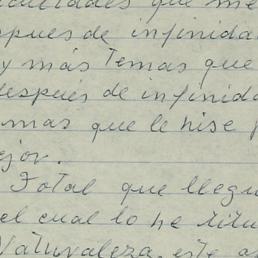 que me
spues de infinida
y más temas que
después de infinid
mas que le hise p
ejor.
Total que llegu
el cual lo he titu
Naturaleza, este a